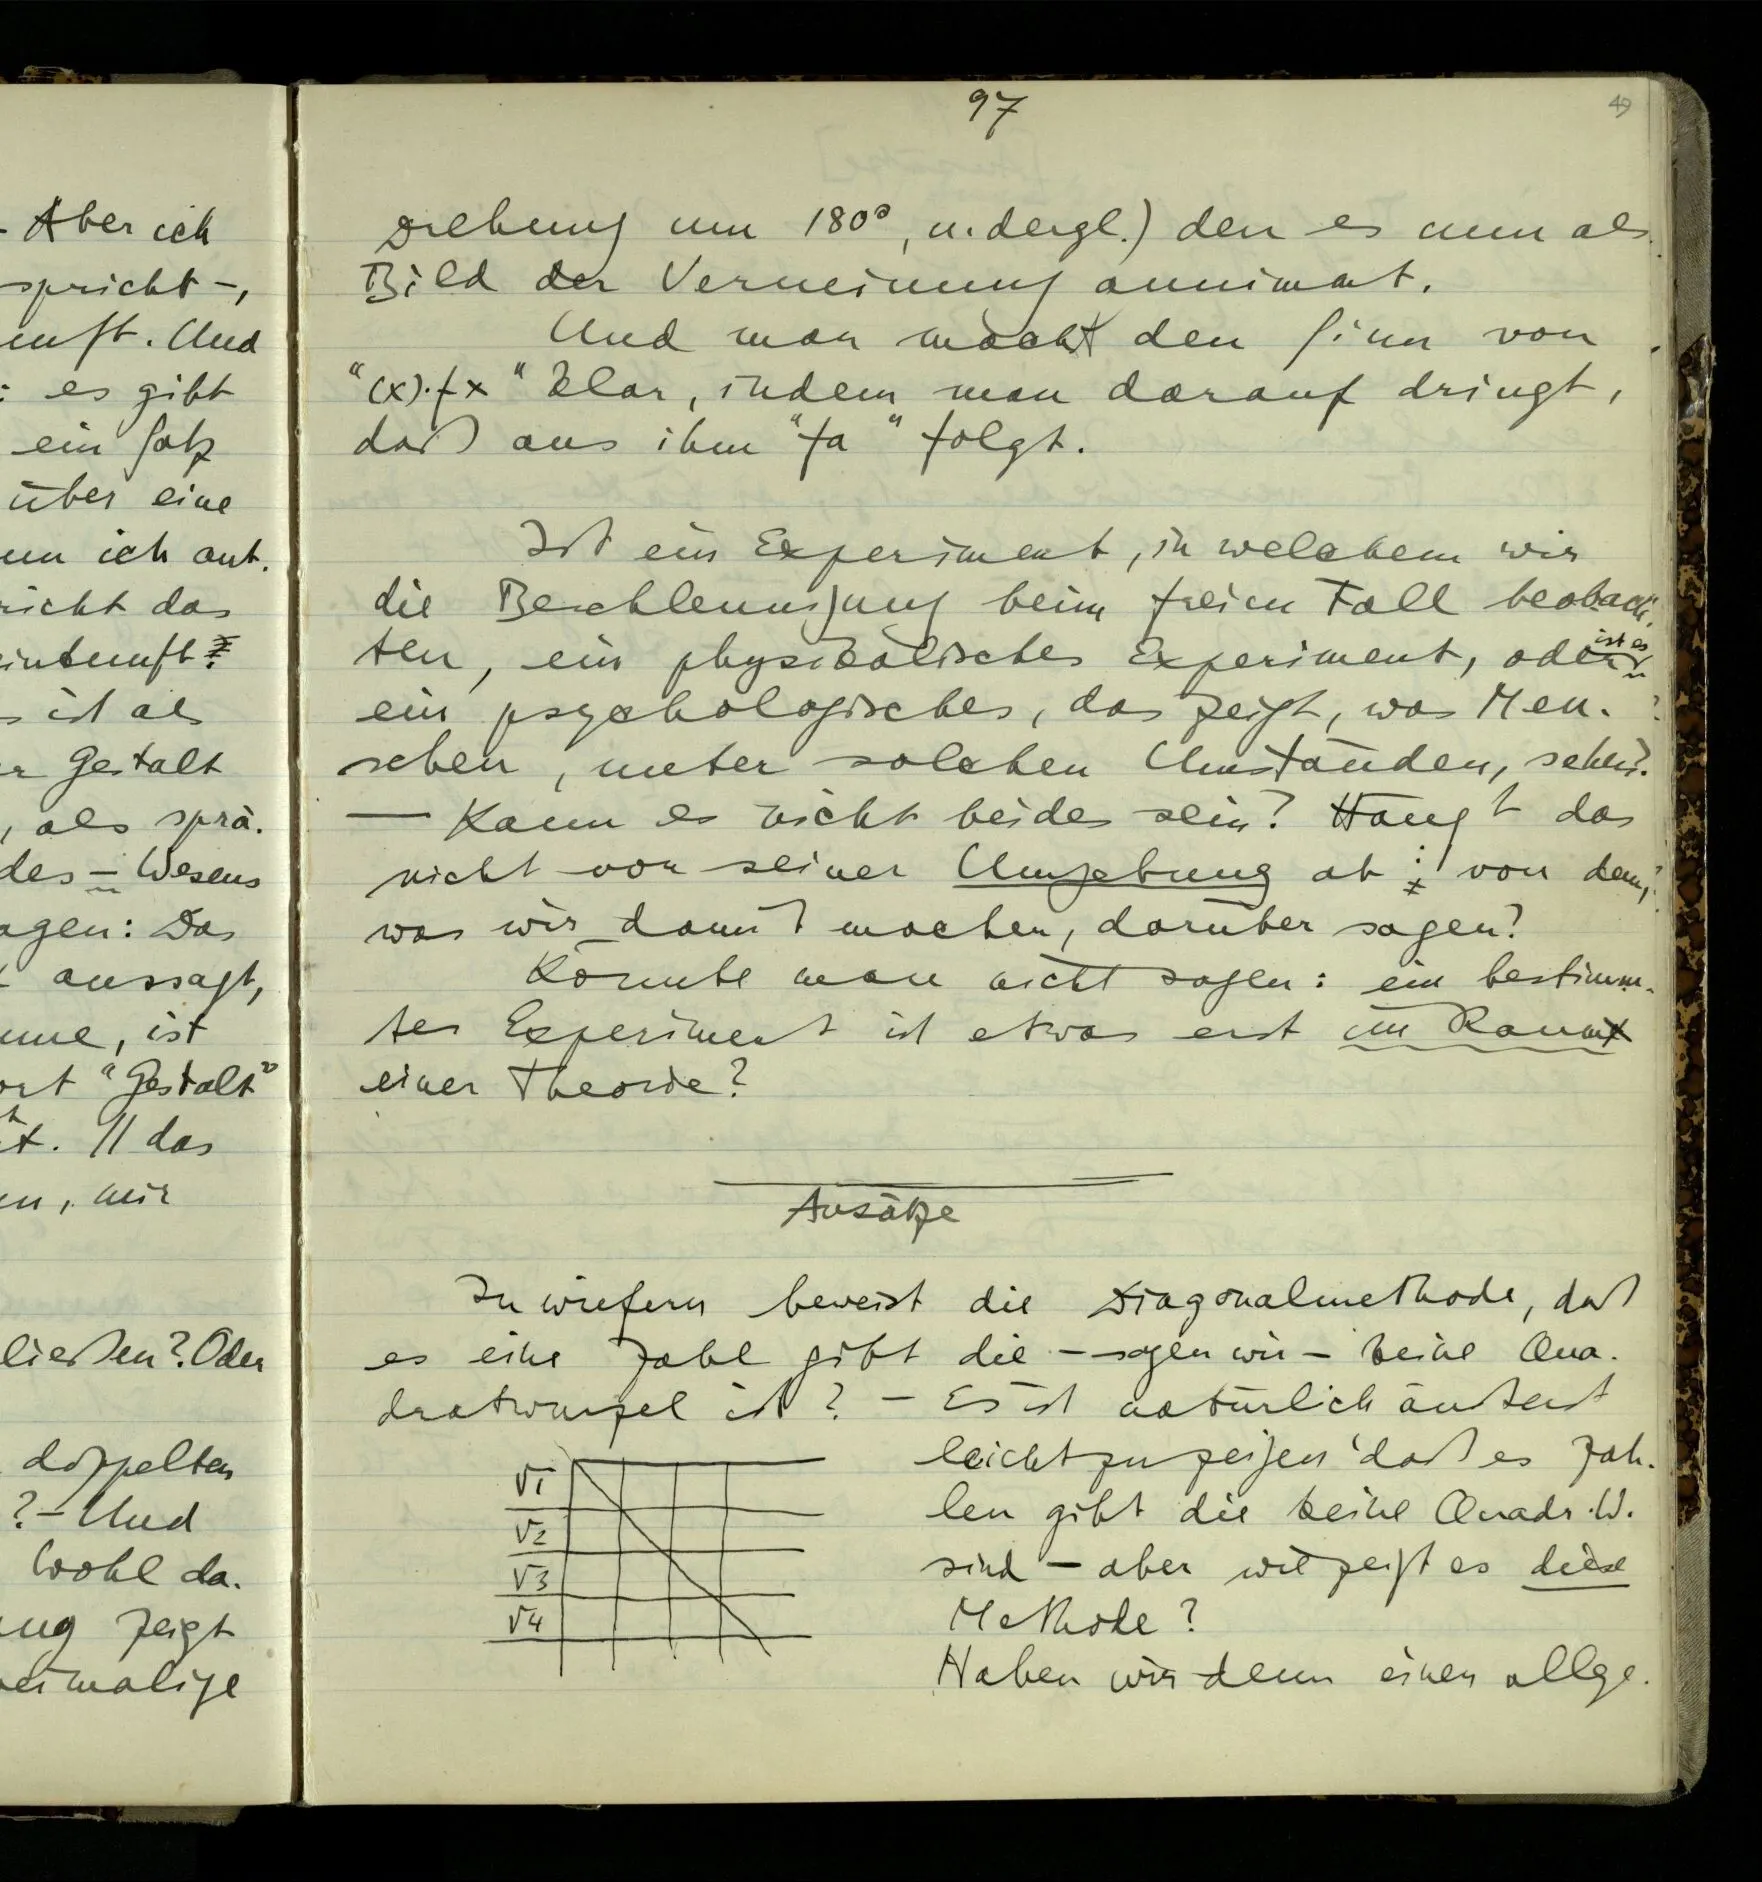 - Aber ich
spricht -,
unft. Und
: es gibt
ein Satz
über eine
ich ant-
nicht das
einkunft
s ist als
er Gestalt
, als sprä-
des - Wesens
agen: Das
aussagt,
, ist
ort "Gestalt"
t. // das
, mir
ließen? Oder
doppelten
? - Und
Wohl da-
ung zeigt
eimalige
97
49
Drehung um 180°, u. dergl.) den es nun als
Bild der Verneinung annimmt.
Und man macht den Sinn von
"(x).fx" klar, indem man darauf dringt,
daß aus ihm "fa" folgt.
Ist ein Experiment, in welchem wir
die Beschleunigung beim freien Fall beobach-
ten, ein physikalisches Experiment, oder ist es
ein psychologisches, das zeigt, was Men-
schen, unter solchen Umständen, sehen?
— Kann es nicht beides sein? Hängt das
nicht von seiner Umgebung ab: von dem,
was wir damit machen, darüber sagen?
Könnte man nicht sagen: ein bestimm-
tes Experiment ist etwas erst im Raum
einer Theorie?
Ansätze
Inwiefern beweist die Diagonalmethode, daß
es eine Zahl gibt die - sagen wir - keine Qua-
dratwurzel ist? - Es ist natürlich äußerst
leicht zu zeigen daß es Zah-
len gibt die keine Quadr.W.
sind - aber wie zeigt es diese
Methode?
√1
√2
√3
√4
Haben wir denn einen allge-